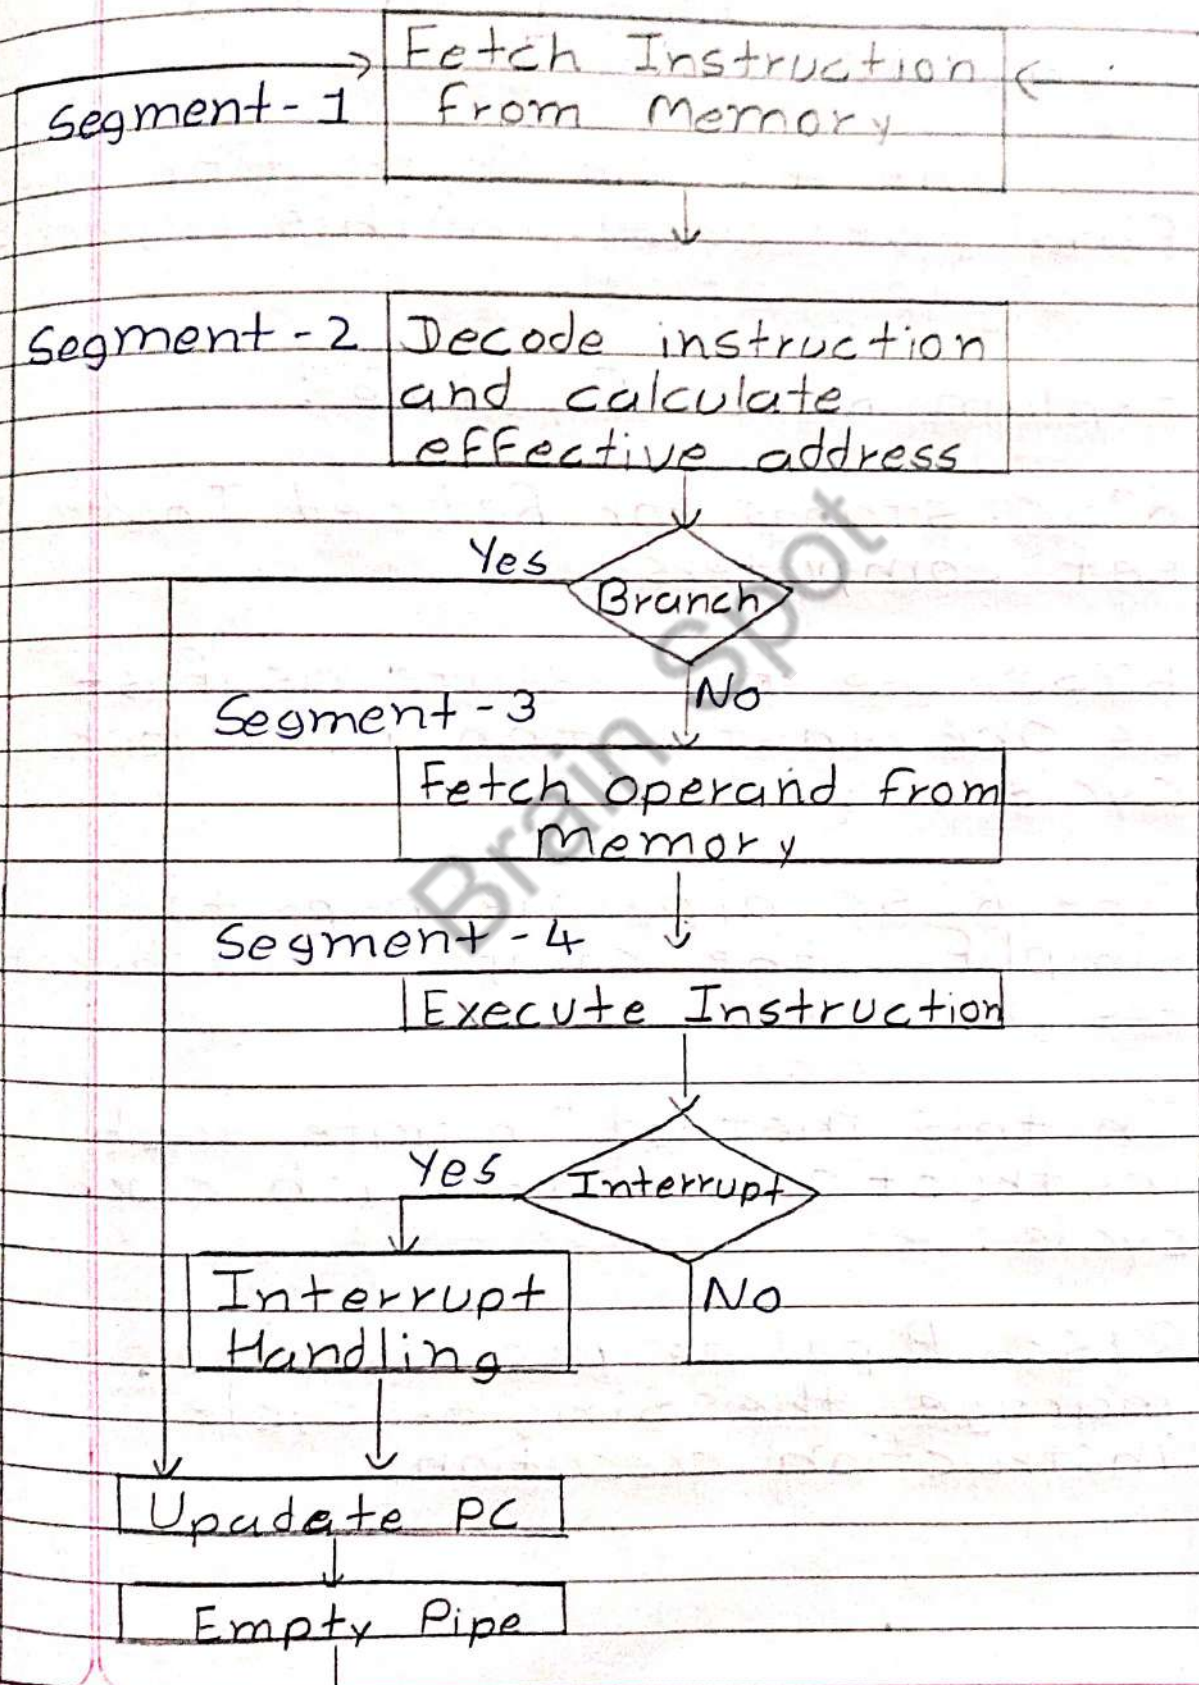 Fetch Instruction
Segment - 1 from Memory
Segment - 2 Decode instruction
and calculate
effective address
Yes
Branch
No
Segment - 3
Fetch operand from
Memory
Segment - 4
Execute Instruction
Yes
Interrupt
No
Interrupt
Handling
Upadate PC
Empty Pipe
Brain Spot